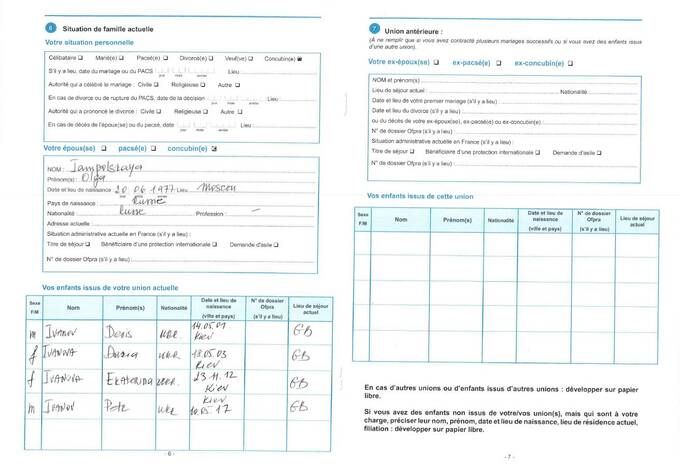 6 Situation de famille actuelle
Votre situation personnelle
Célibataire Marié(e) Pacsé(e) Divorcé(e) Veuf(ve) Concubin(e)
S'il y a lieu, date du mariage ou du PACS Lieu
jour mois année
Autorité qui a célébré le mariage : Civile Religieuse Autre
En cas de divorce ou de rupture du PACS, date de la décision
jour mois année
Autorité qui a prononcé le divorce : Civile Religieuse Autre
En cas de décès de l'époux(se) ou du pacsé, date Lieu
jour mois année
Votre époux(se) pacsé(e) concubin(e)
NOM : Iampolskaya
Prénom(s) : Olga
Date et lieu de naissance 20 06 1977 Lieu Moscou
jour mois année
Pays de naissance : Russie
Nationalité Russe Profession : –
Adresse actuelle :
Situation administrative actuelle en France (s'il y a lieu) :
Titre de séjour Bénéficiaire d'une protection internationale Demande d'asile
N° de dossier Ofpra (s'il y a lieu) :
Vos enfants issus de votre union actuelle
Sexe F/M Nom Prénom(s) Nationalité Date et lieu de naissance (ville et pays) N° de dossier Ofpra (s'il y a lieu) Lieu de séjour actuel
m Ivanov Denis UKR 14.05.01 Kiev GB
f Ivanova UKR 18.05.03 Kiev GB
f Ivanova Ekaterina UKR. 23.11.12 Kiev GB
m Ivanov Petr UKR Kiev 10.05.17 GB
- 6 -
7 Union antérieure :
(A ne remplir que si vous avez contracté plusieurs mariages successifs ou si vous avez des enfants issus
d'une autre union).
Votre ex-époux(se) ex-pacsé(e) ex-concubin(e)
NOM et prénom(s) :
Lieu de séjour actuel : Nationalité
Date et lieu de votre premier mariage (s'il y a lieu) :
Date et lieu du divorce (s'il y a lieu) :
ou du décès de votre ex-époux(se), ex-pacsé(e) ou ex-concubin(e) :
N° de dossier Ofpra (s'il y a lieu) :
Situation administrative actuelle en France (s'il y a lieu) :
Titre de séjour Bénéficiaire d'une protection internationale Demande d'asile
N° de dossier Ofpra (s'il y a lieu) :
Vos enfants issus de cette union
Sexe F/M Nom Prénom(s) Nationalité Date et lieu de naissance (ville et pays) N° de dossier Ofpra (s'il y a lieu) Lieu de séjour actuel
En cas d'autres unions ou d'enfants issus d'autres unions : développer sur papier
libre.
Si vous avez des enfants non issus de votre/vos union(s), mais qui sont à votre
charge, préciser leur nom, prénom, date et lieu de naissance, lieu de résidence actuel,
filiation : développer sur papier libre.
- 7 -